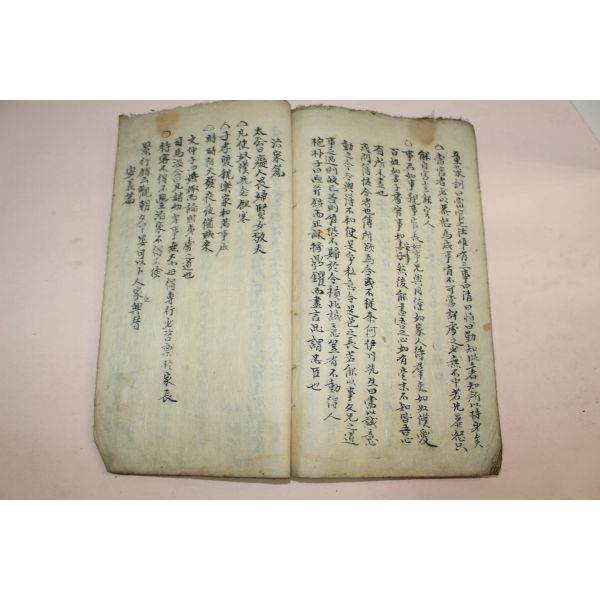 童蒙訓曰當官之法唯有三事曰清曰愼曰勤知此三者知所以持身矣
○當官者必以暴怒爲戒事有不可當詳處之必無不中若先暴怒只
能自害豈能害人
○事君如事親事官長如事兄與同僚如家人待羣吏如奴僕愛
百姓如妻子處官事如家事然後能盡吾之心如有毫末不至皆吾心
有所未盡也
或問簿佐令者也簿所欲爲令或不從奈何伊川先生曰當以誠意
動之今令與簿不和便是爭私意令是邑之長若能以事父兄之道
事之過則歸己善則唯恐不歸於令積此誠意豈有不動得人
抱朴子曰迎斧鉞而正諫據鼎鑊而盡言此謂忠臣也
治家篇
太公曰癡人畏婦賢女敬夫
○凡使奴僕先念飢寒
○子孝雙親樂家和萬事成
○時時防火發夜夜備賊來
文仲子曰婚娶而論財夷虜之道也
司馬溫公曰凡諸卑幼事無大小毋得專行必咨稟於家長
○待客不得不豊治家不得不儉
景行錄云觀朝夕早晏可以卜人家之興替
安義篇